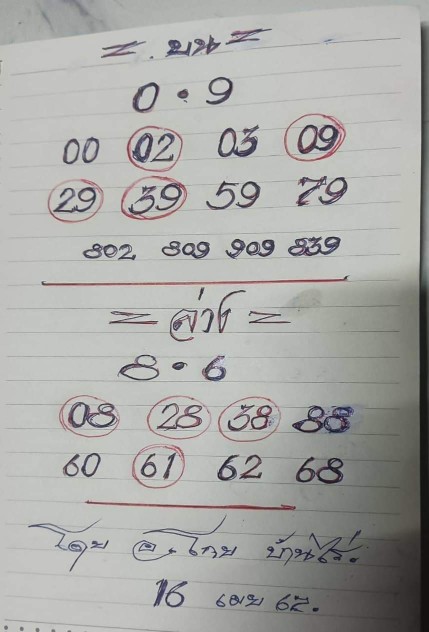 = บน =
0 • 9
00 02 03 09
29 39 59 79
802 809 909 839
= ล่าง =
8 • 6
08 28 38 88
60 61 62 68
โดย อ. โทย บ้านไร่.
16 เมย 67.